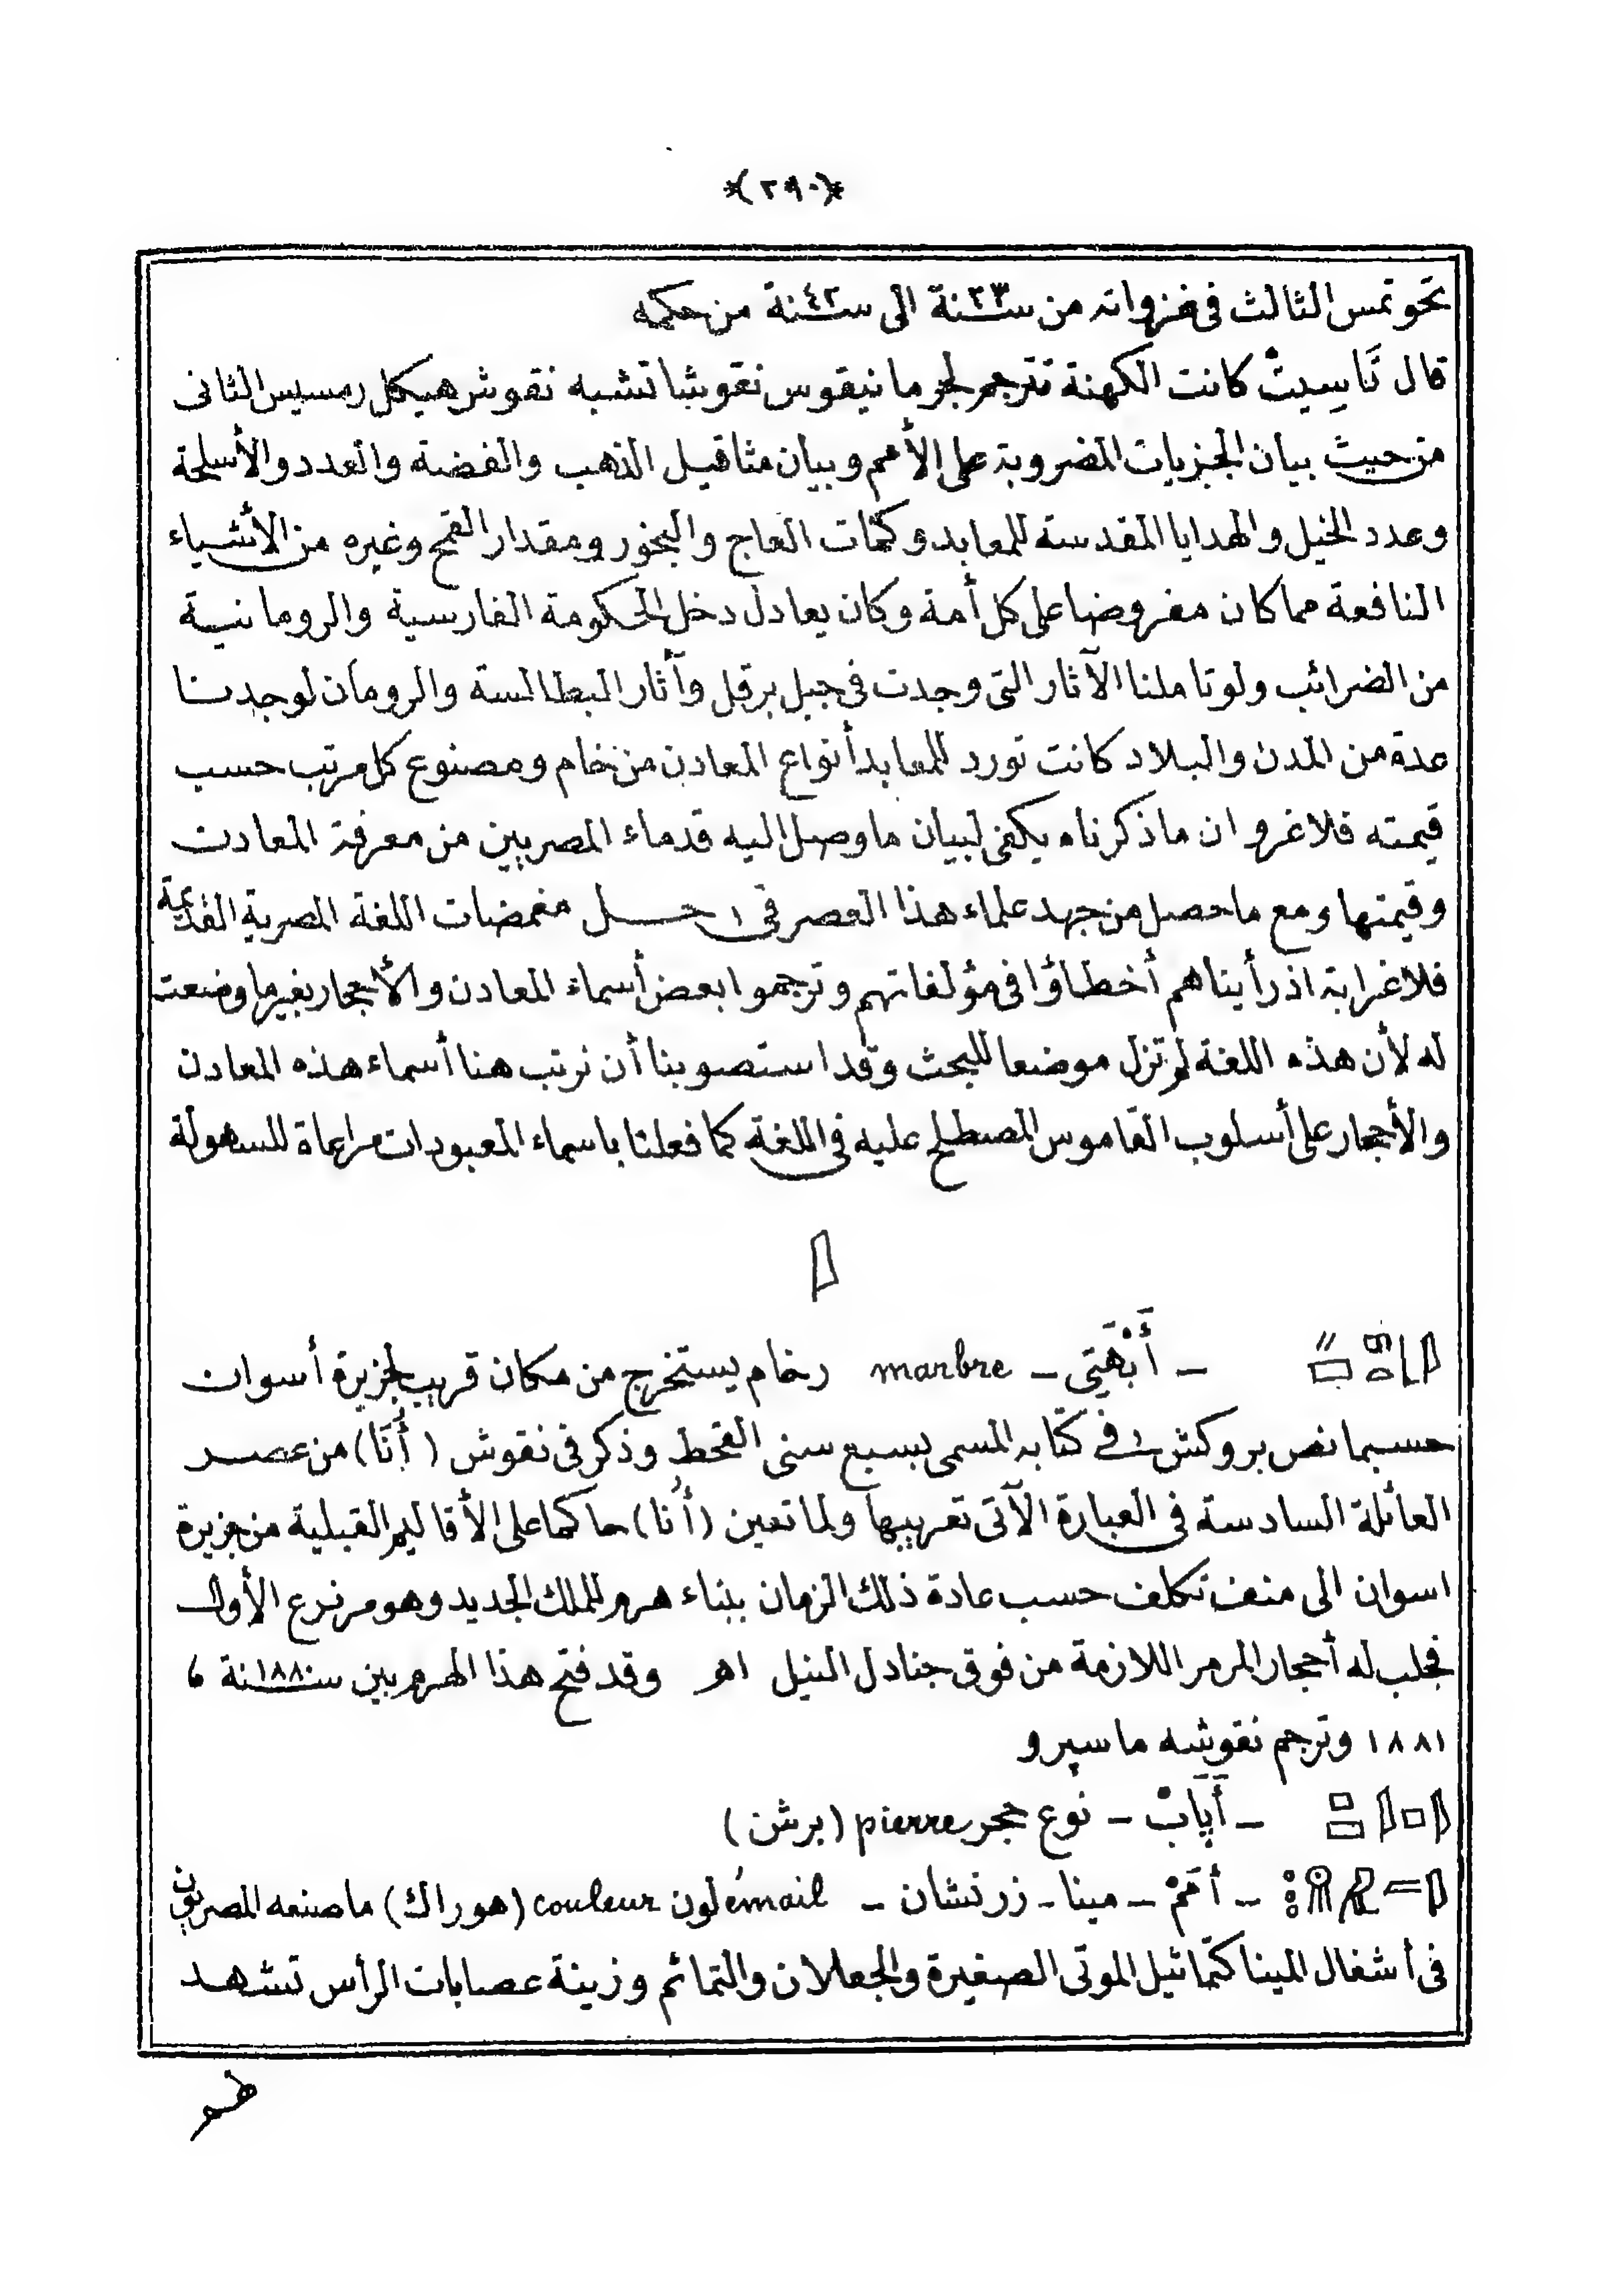 *(٢٩٠)*
تحوتمس الثالث فى غزواته من سنة ٢٣ الى سنة ٤٢ من حكمه
قال تَاسِيتْ كانت الكهنة تترجم لجرمانيقوس نقوشا تشبه نقوش هيكل رمسيس الثانى
من حيث بيان الجزيات المضروبة على الأمم وبيان مثاقيل الذهب والفضة والعدد والأسلحة
وعدد الخيل والهدايا المقدسة للمعابد وكميات العاج والبخور ومقدار القمح وغيره من الأشياء
النافعة مما كان مفروضا على كل أمة وكان يعادل دخل الحكومة الفارسية والرومانية
من الضرائب ولو تاملنا الآثار التى وجدت فى جبل برقل وآثار البطالسة والرومان لوجدنا
عدة من المدن والبلاد كانت تورد للمعابد أنواع المعادن من خام ومصنوع كل مرتب حسب
قيمته فلا غرو ان ما ذكرناه يكفى لبيان ما وصل اليه قدماء المصريين من معرفة المعادن
وقيمتها ومع ما حصل من جهد علماء هذا العصر فى حل مغمضات اللغة المصرية القديمة
فلا غرابة اذ رأيناهم أخطاؤا فى مؤلفاتهم وترجموا بعض أسماء المعادن والأحجار بغير ما وضعت
له لأن هذه اللغة لم تزل موضعا للبحث وقد استصوبنا أن نرتب هنا أسماء هذه المعادن
والأحجار على أسلوب القاموس المصطلح عليه فى اللغة كما فعلنا باسماء المعبودات مراعاة للسهولة
𓇋
ـ أَبْهَتِى ـ marbre رخام يستخرج من مكان قريب لجزيرة أسوان
حسبما نص بروكش فى كتابه المسمى بسبع سنى القحط وذكر فى نقوش (أُنَا) من عصر
العائلة السادسة فى العبارة الآتى تعريبها ولما تعين (أُنا) حاكما على الأقاليم القبلية من جزيرة
اسوان الى منف تكلف حسب عادة ذلك الزمان ببناء هرم للملك الجديد وهو مرنرع الأول
فجلب له أحجار المرمر اللازمة من فوق جنادل النيل اهـ وقد فتح هذا الهرم بين سنة ١٨٨٠ ،
١٨٨١ وترجم نقوشه ماسپرو
ـ أَپَابْ ـ نوع حجر pierre (برشن)
ـ أَمَمْ ـ مينا ـ زرنشان ـ émail لون couleur (هوراك) ما صنعه المصريون
فى أشغال المينا كتماثيل الموتى الصغيرة والجعلان والتمائم وزينة عصابات الرأس تشهد